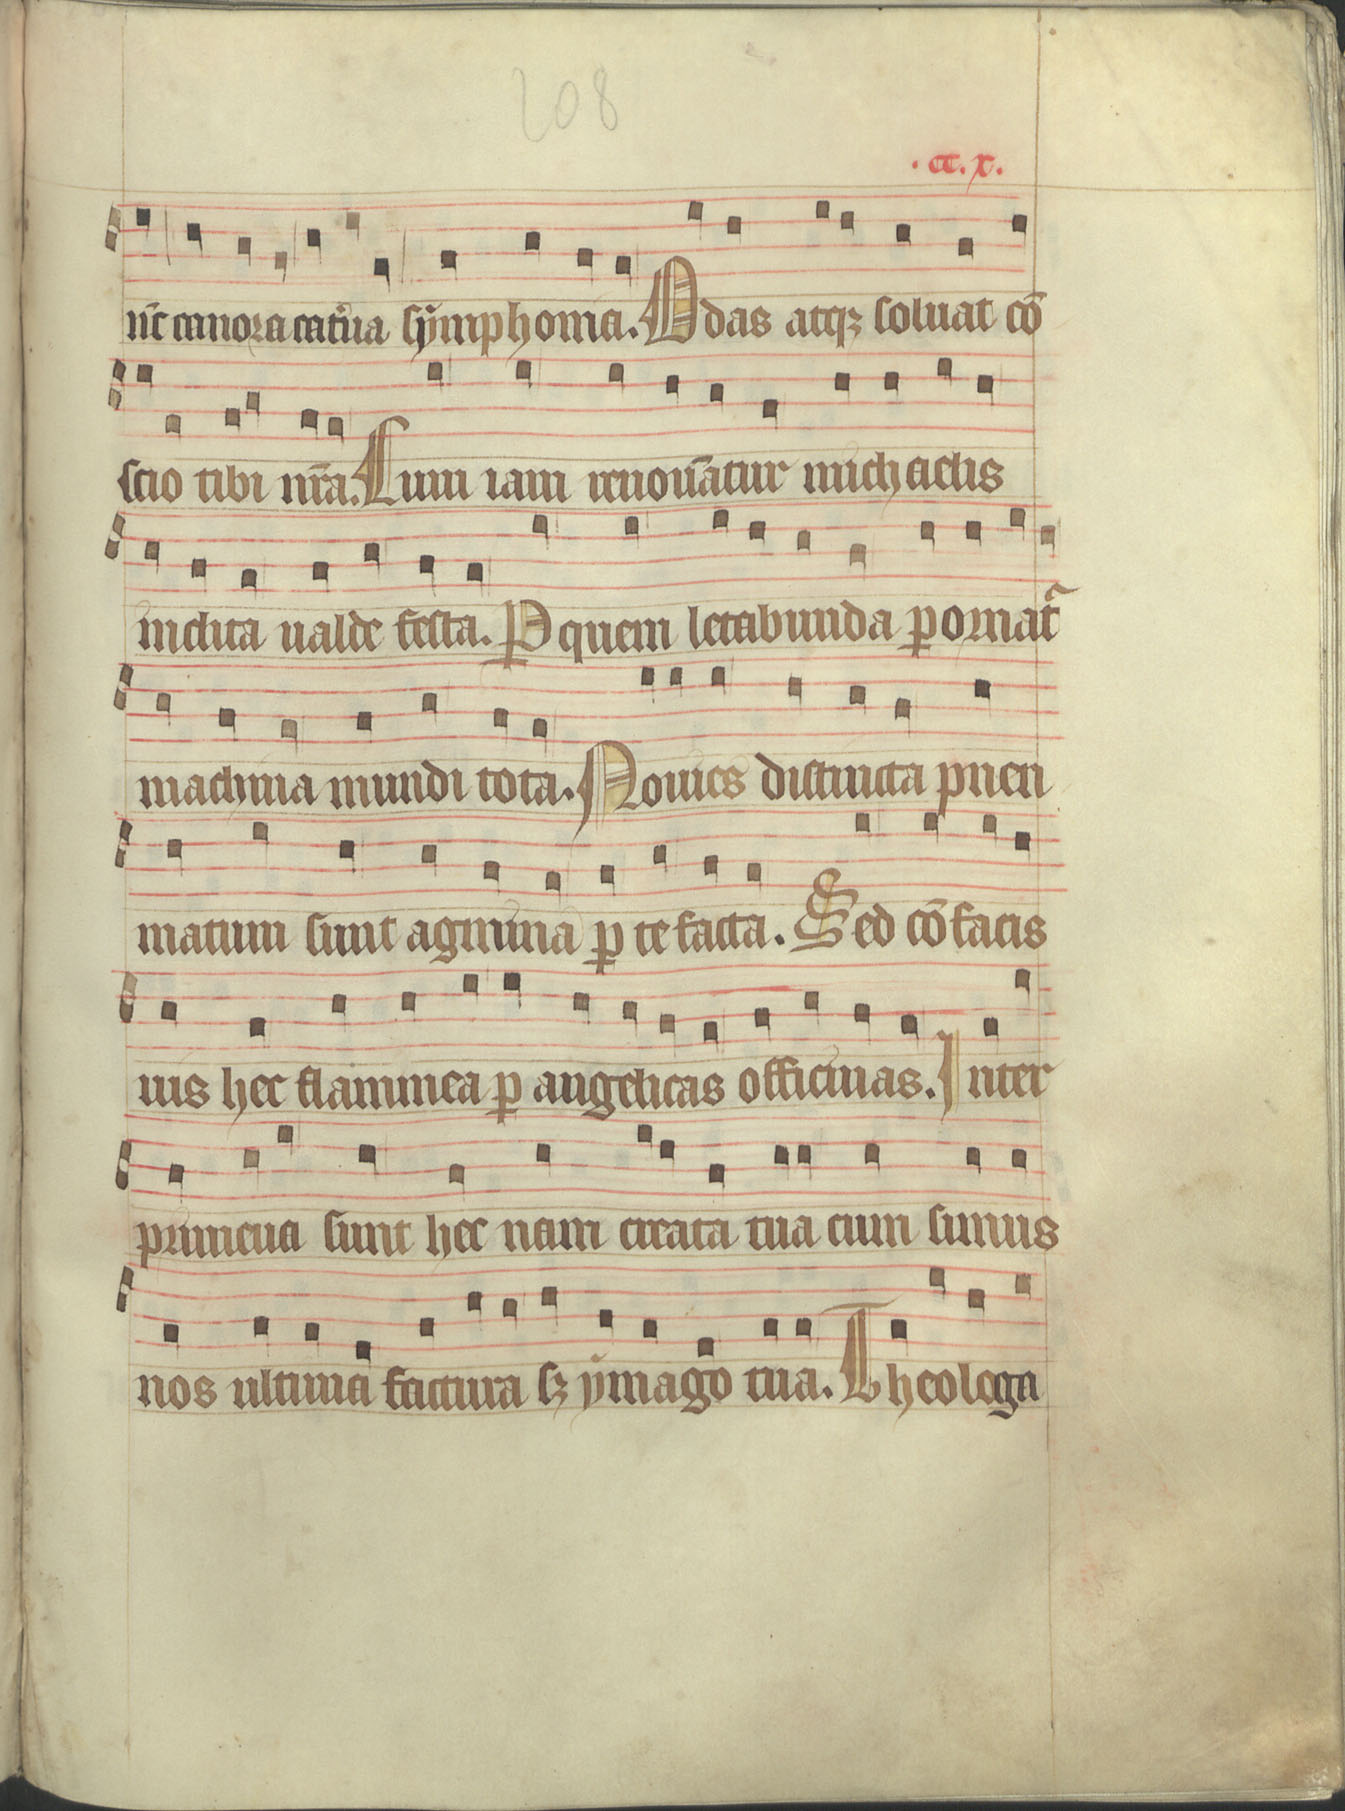 208
.cc.x.
nc̄ canora cat͛ua symphonia. Odas atqꝫ soluat cō
scio tibi nr̄a. Cum iam renouāt̄ur michaelis
inclita ualde festa. P quem letabunda ꝑornat͛
machina mundi tota. Nouies distincta pneu
matum sunt agmina ꝑ te facta. Sed cō facis
uis hec flammea ꝑ angelicas officinas. Inter
primeua sunt hec nam creata tua cum simus
nos ultima factura sꝫ ymago tua. Theologa